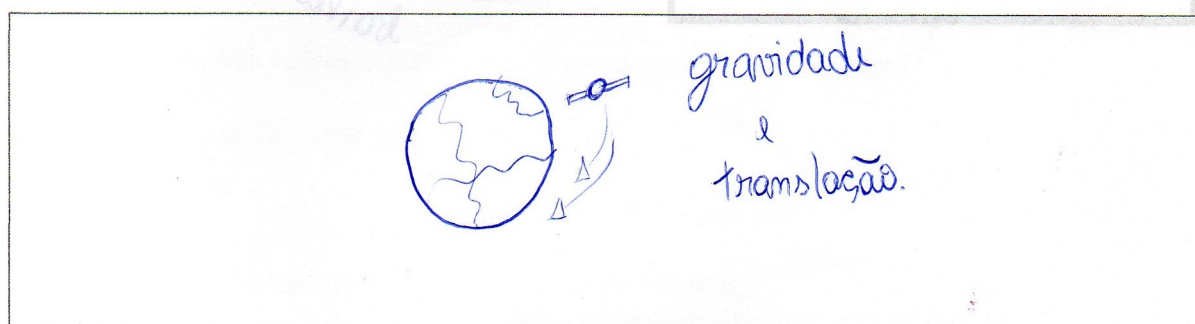 gravidade
e
translação.